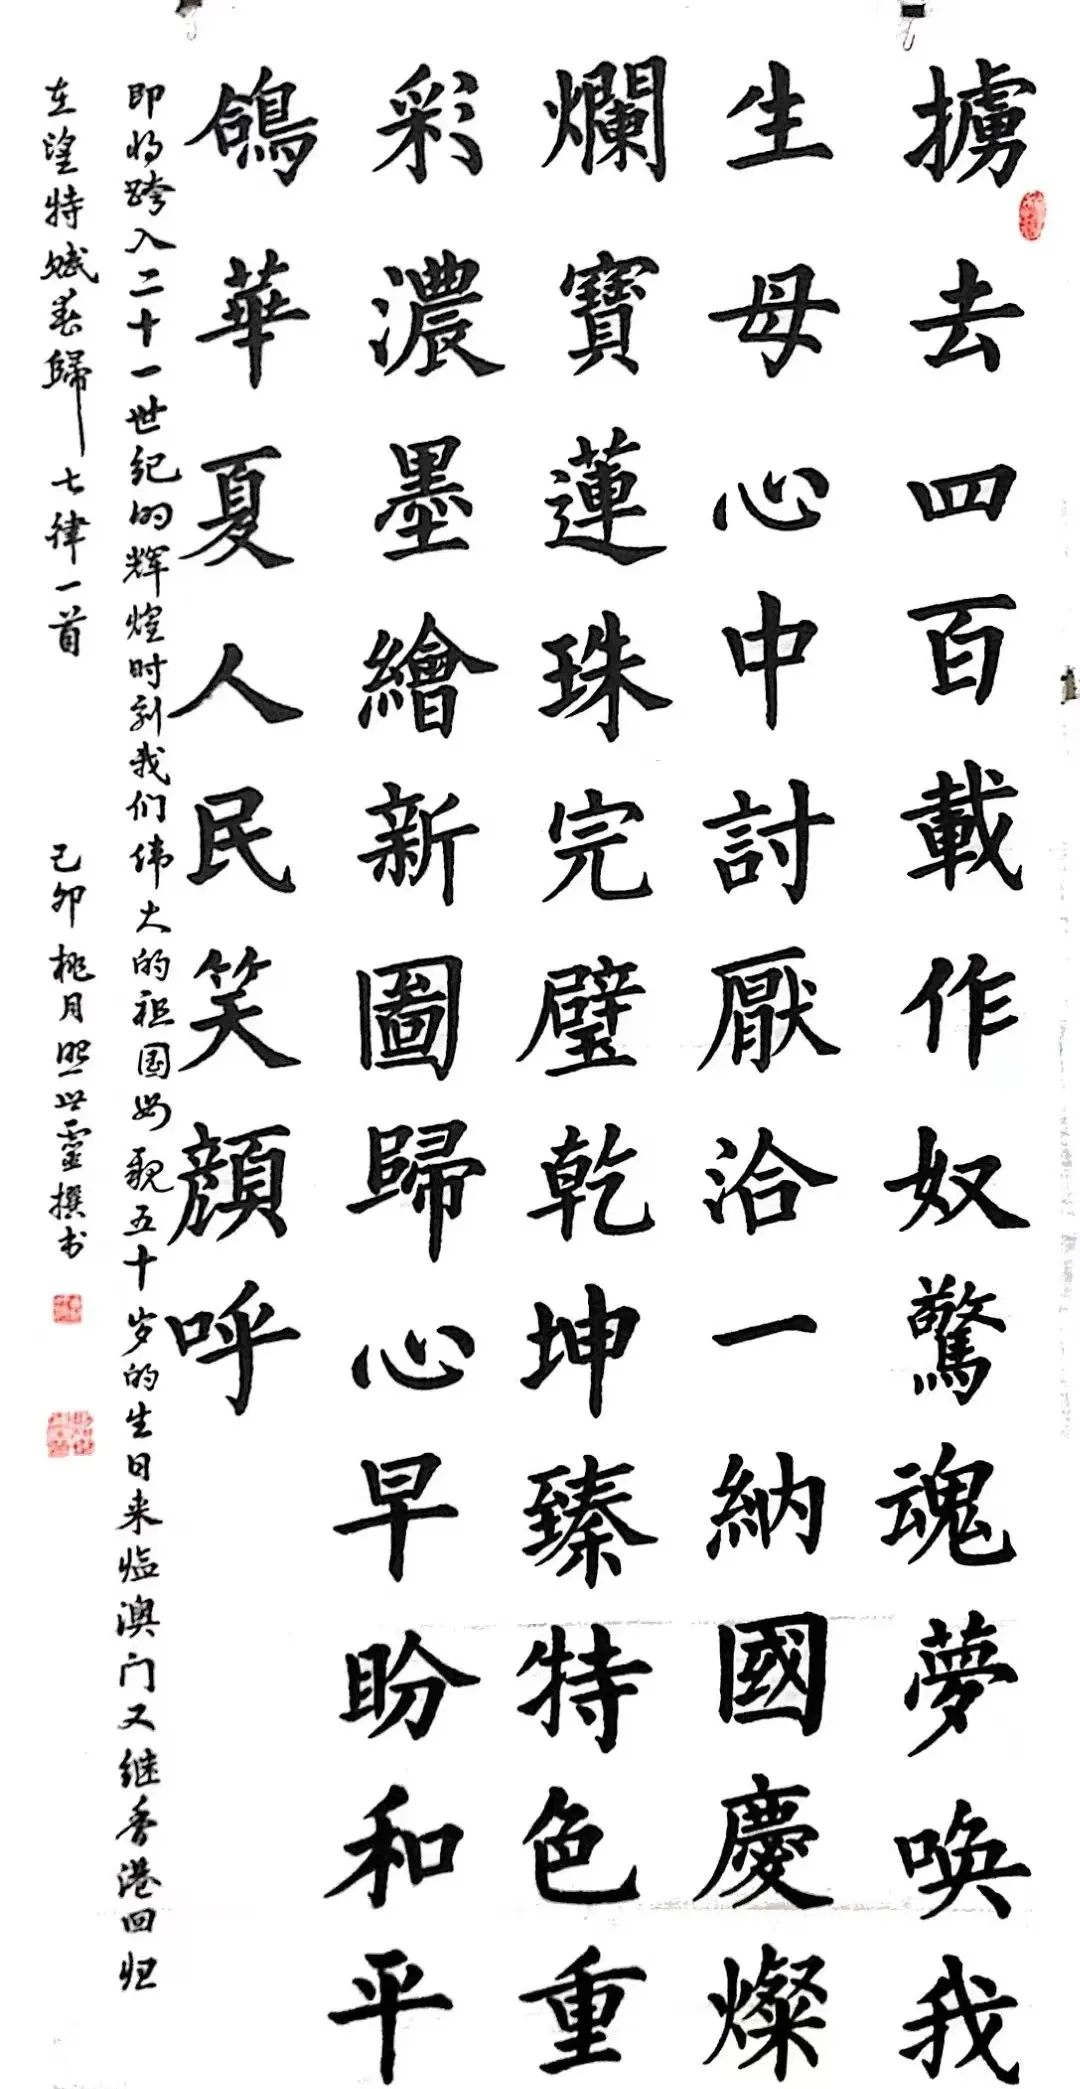 擄去四百載作奴驚魂夢喚我
生母心中討厭洽一納國慶燦
爛寶蓮珠完璧乾坤臻特色重
彩濃墨繪新圖歸心早盼和平
鴿華夏人民笑顔呼
即将跨入二十一世纪的辉煌时刻我们伟大的祖国母親五十岁的生日来临澳门又继香港回归
在望特赋春歸七律一首
己卯桃月照世靈撰书